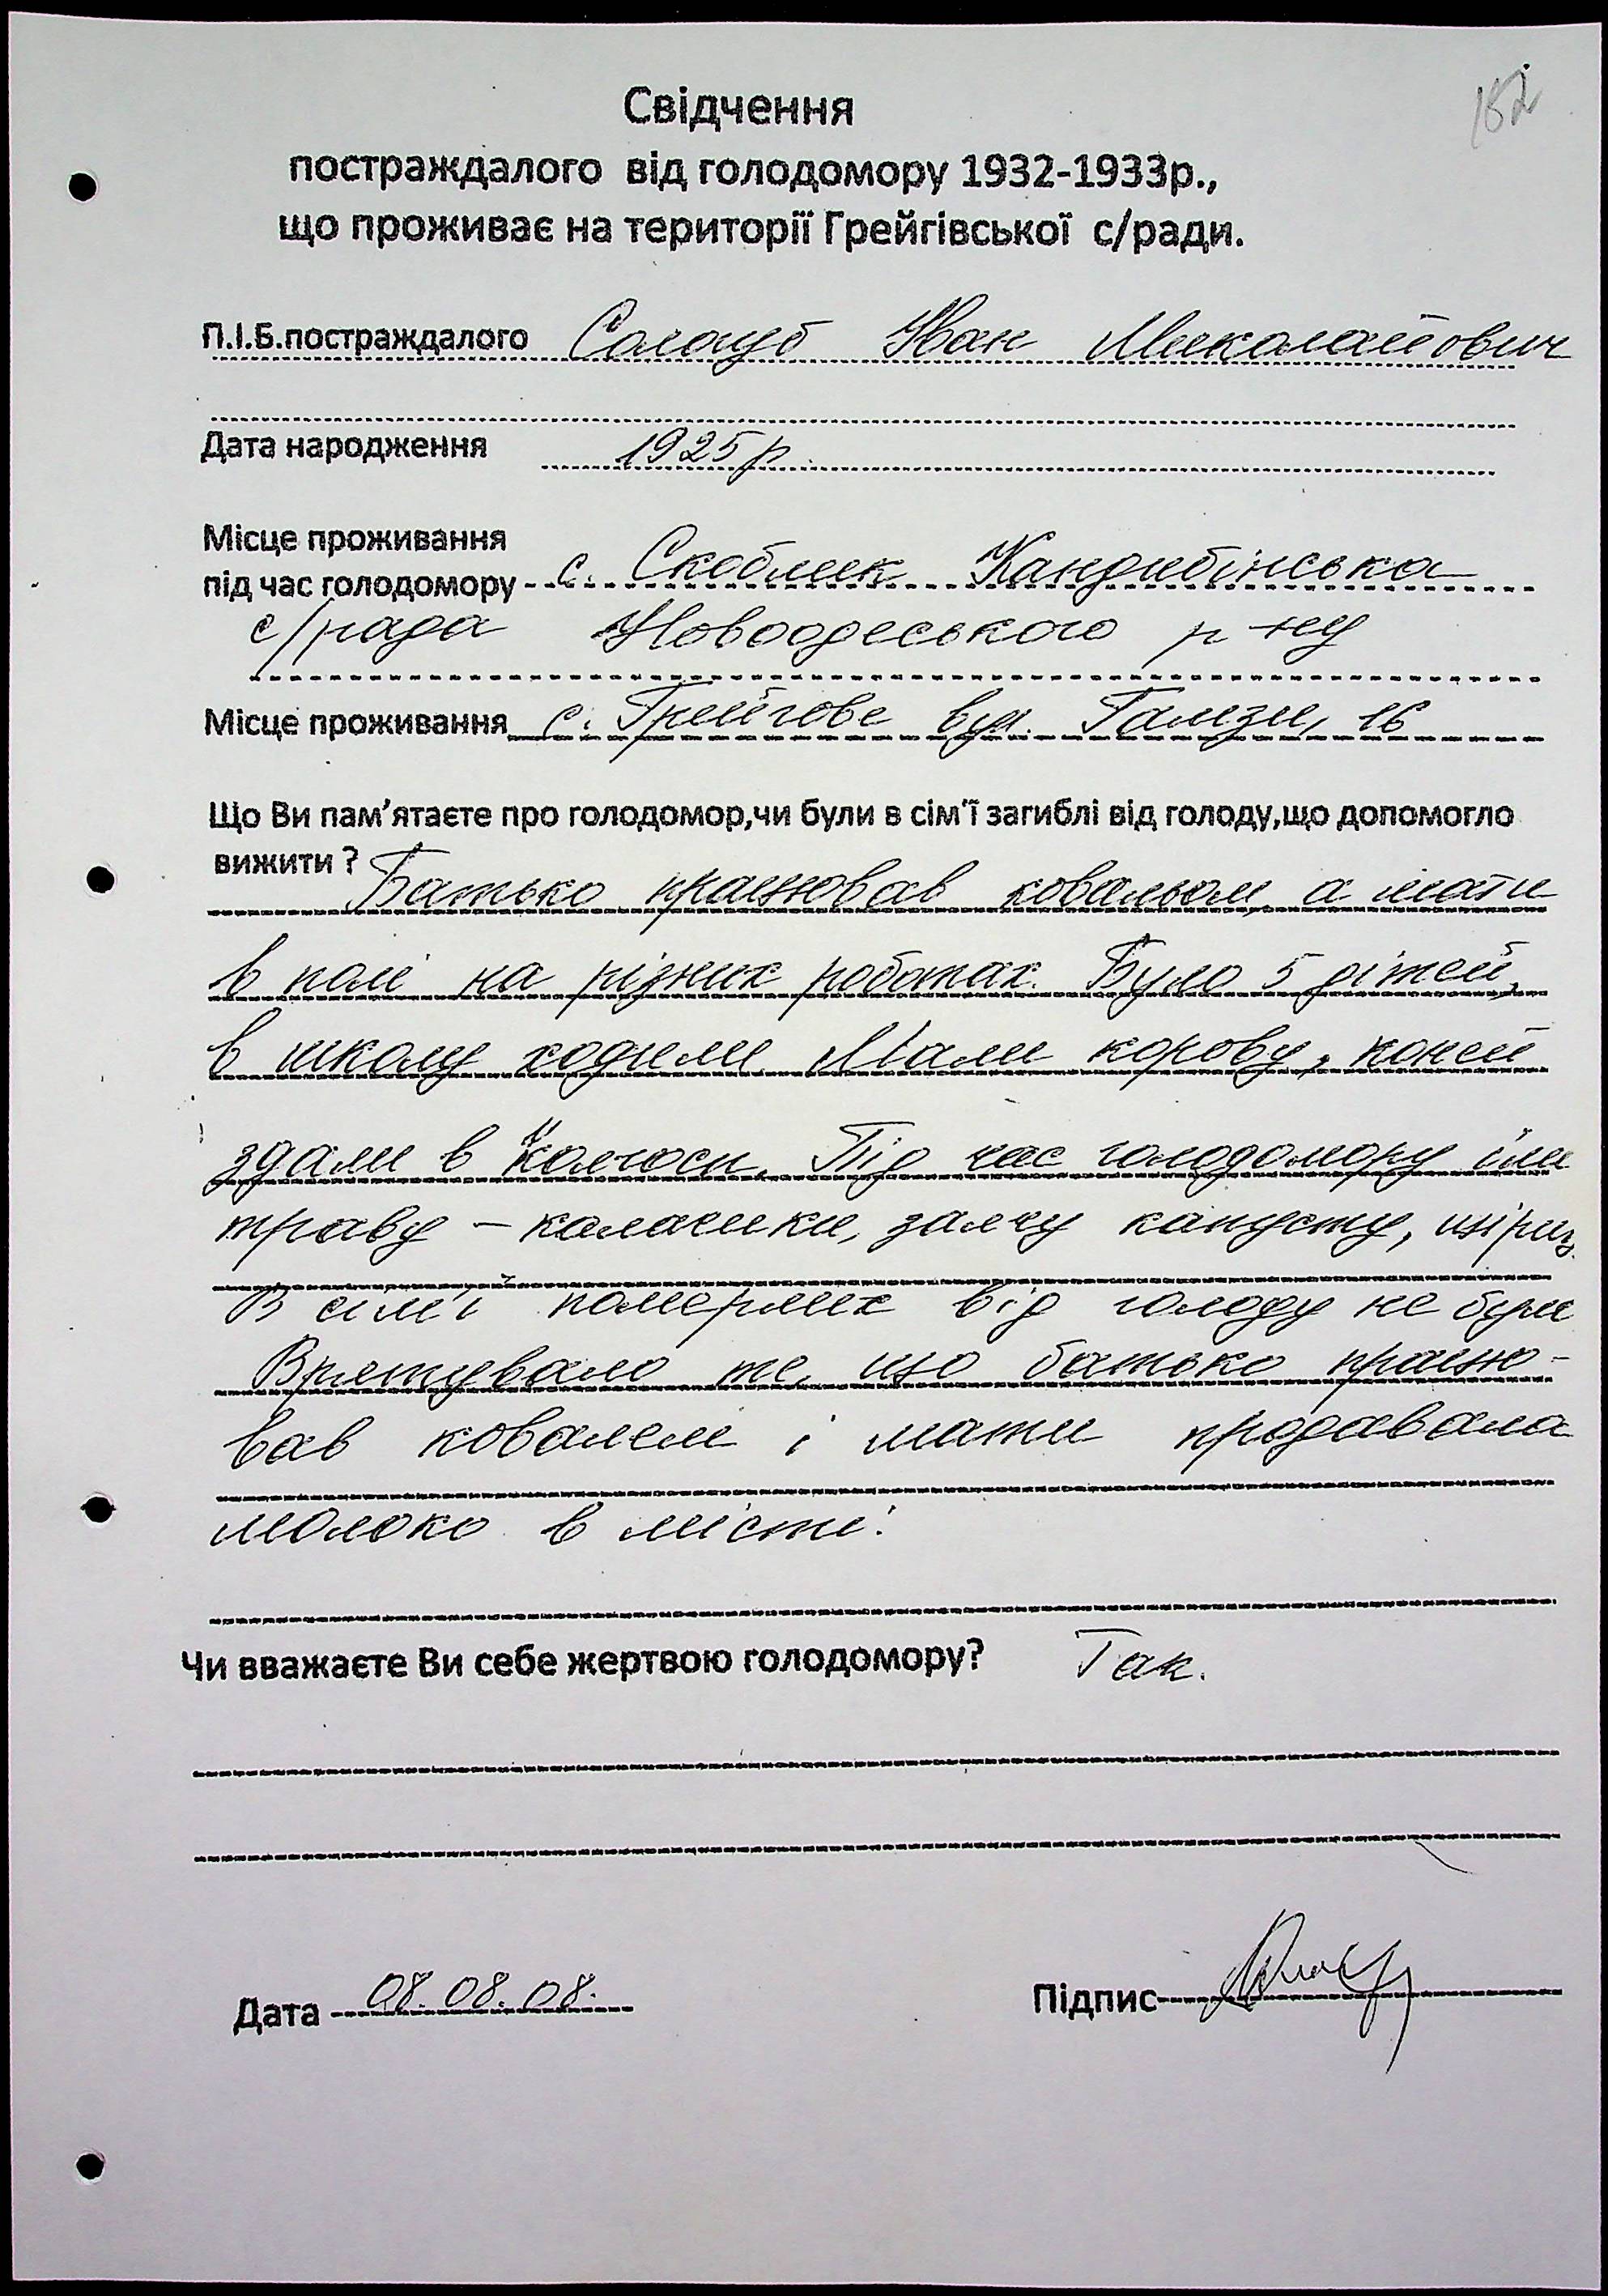 182
Свідчення
постраждалого від голодомору 1932-1933р.,
що проживає на території Грейгівської с/ради.
П.І.Б.постраждалого Сологуб Іван Миколайович
Дата народження 1925р
Місце проживання
під час голодомору с. Скоблик Кандибінська
с/рада Новоодеського р-ну
Місце проживання с. Грейгове вул. Гамзи, 16
Що Ви пам'ятаєте про голодомор,чи були в сім'ї загиблі від голоду,що допомогло
вижити ? Батько працював ковальом, а мати
в полі на різних роботах. Було 5 дітей,
в школу ходили. Мали корову, коней
здали в колгосп. Під час голодомору їли
траву – калачики, заячу капусту, щіриц.
В сім'ї померлих від голоду не були
Врятувало те, що батько працю-
вав ковалем і мати продавала
молоко в місті.
Чи вважаєте Ви себе жертвою голодомору? Так.
Дата 08.08.08.
Підпис